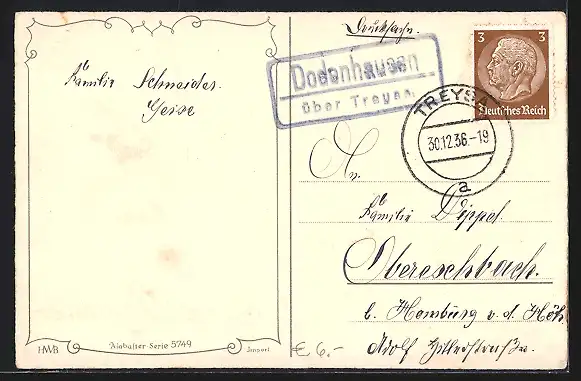 Familie Schneider.
Geise
HWB
Alabaster-Serie 5749
Import
Drucksache.
Dodenhausen
über Treysa
3 3
Deutsches Reich
TREYSA
30.12.36.-19
a
An
Familie Dippel.
Obereschbach.
b. Homburg v. d. Höh.
Adolf Hitlerstraße.
€ 6.-